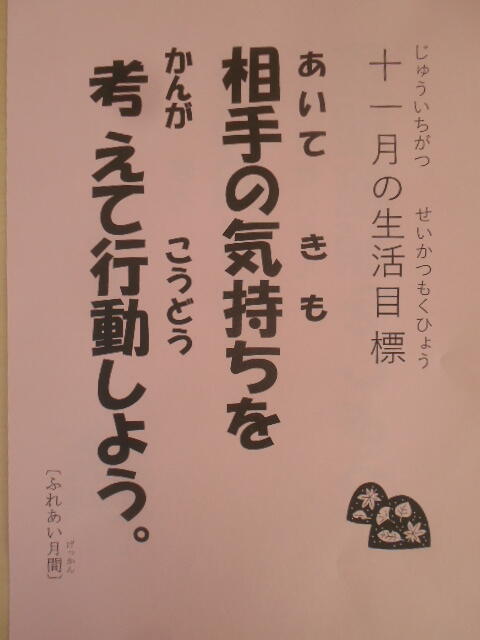 じゅういちがつ せいかつもくひょう
十一月の生活目標
あいて きも
相手の気持ちを
かんが こうどう
考えて行動しよう。
げっかん
〔ふれあい月間〕